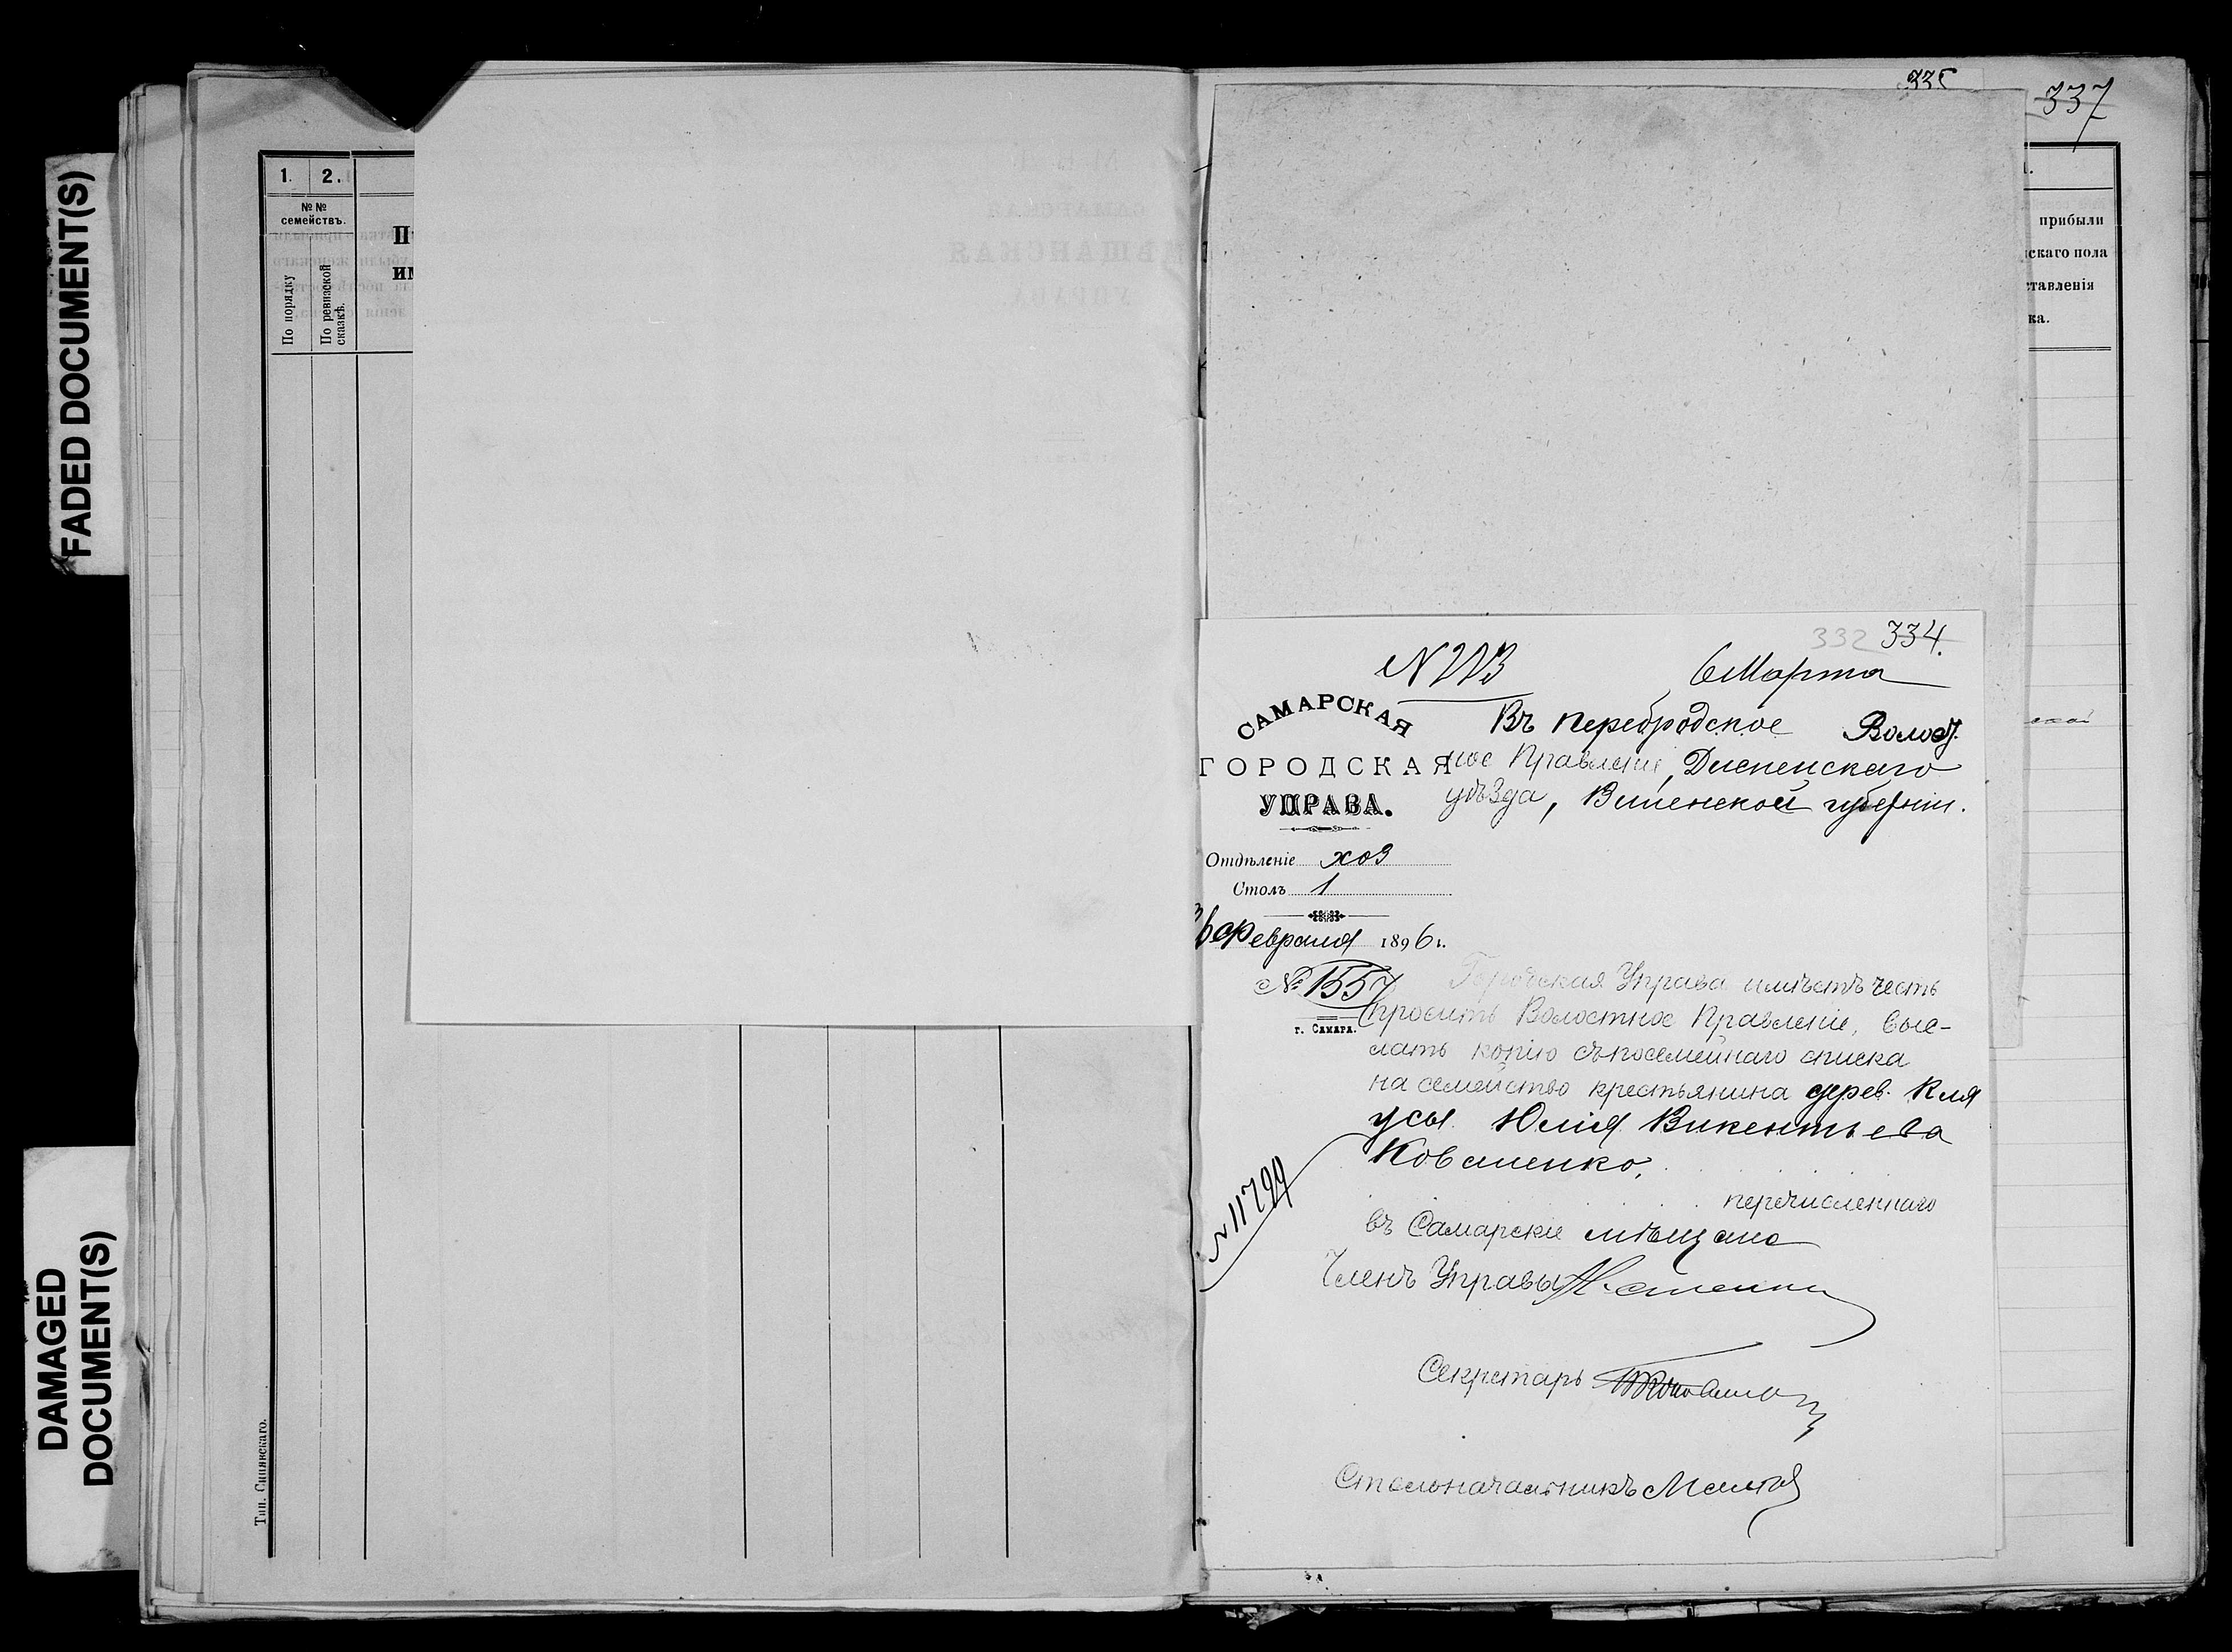 FADED DOCUMENT(S)
DAMAGED
DOCUMENT(S)
1. 2.
№№
семействъ.
По порядку
По ревизской
сказкѣ.
Тип. Сипянскаго.
335
337
прибыли
скаго пола
ставленія
ка.
332 334.
6 Марта
САМАРСКАЯ
ГОРОДСКАЯ
УПРАВА.
Отдѣленіе хоз
Столъ 1
Февраля 1896 г.
№ 1557
г. Самара.
№ 11799
Въ Перебродское Волост
ное Правленіе, Дисненскаго
уѣзда, Виленской губерніи.
Городская Управа имѣетъ честь
просить Волостное Правленіе, выс-
лать копію съ посемейнаго списка
на семейство крестьянина дерев. Кля
усы Юлія Викентьева
Коваленко,
перечисленнаго
въ Самарскіе мѣщане
Членъ Управы
Секретарь
Столоначальникъ